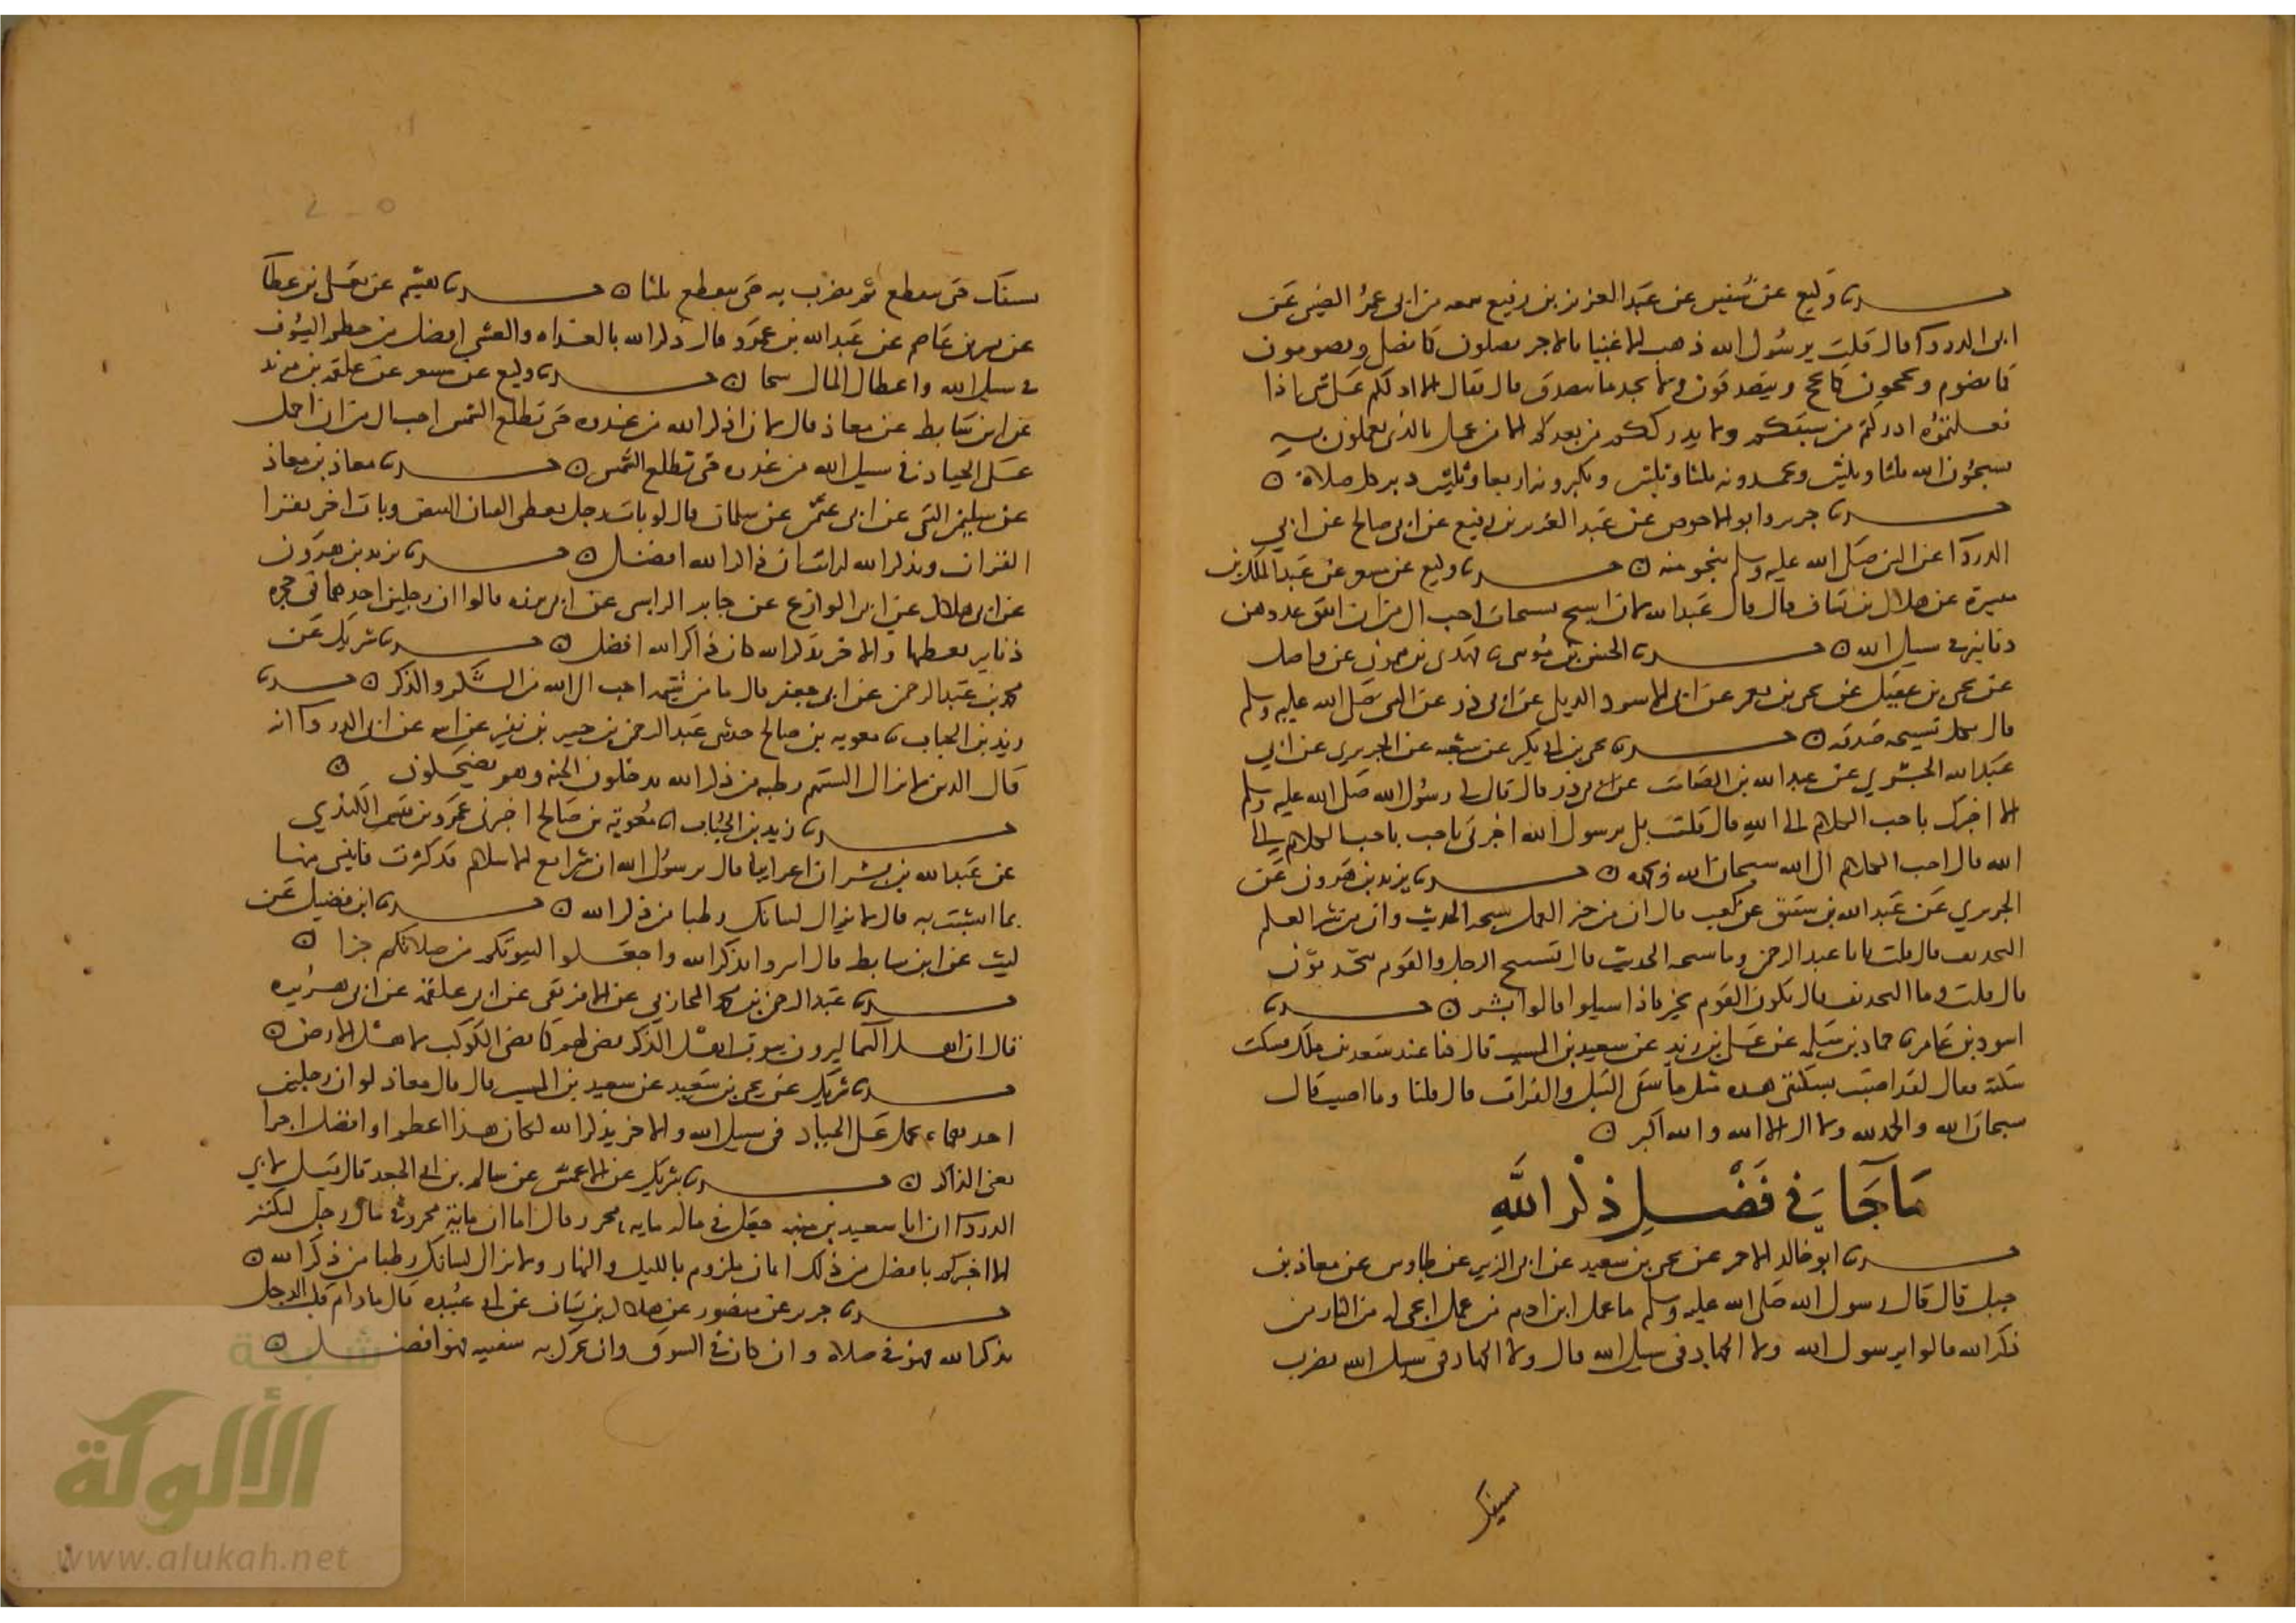 حدثنا وكيع عن سفين عن عبد العزيز بن رفيع سمعه من ابى عمر الضبى عن
ابى الدرداء قال قلت يرسول الله ذهب الاغنيا بالاجر يصلون كما نصلى ويصومون
كما نصوم ويحجون كما نحج ويتصدقون ولا نجد ما نتصدق قال فقال الا ادلكم على شى اذا
فعلتموه ادركتم من سبقكم ولا يدرككم من بعدكم الا من عمل بالذى تعملون به
تسبحون الله ثلثا وثلثين وتحمدونه ثلثا وثلثين وتكبرونه اربعا وثلثين دبر كل صلاة
حدثنا جرير وابو الاحوص عن عبد العزيز بن رفيع عن ابى صالح عن ابي
الدرداء عن النبى صلى الله عليه وسلم بنحو منه حدثنا وكيع عن مسعر عن عبد الملك بن
ميسرة عن هلال بن يساف قال قال عبد الله لان اسبح تسبيحات احب الى من ان انفق عددهن
دنانير فى سبيل الله حدثنا الحسن بن موسى ثنا مهدى بن ميمون عن واصل
عن يحيى بن عقيل عن يحيى بن يعمر عن ابى الاسود الديلى عن ابى ذر عن النبى صلى الله عليه وسلم
قال بكل تسبيحه صدقه حدثنا يحيى بن ابى بكير عن شعبه عن الجريرى عن ابي
عبد الله الجشري عن عبد الله بن الصامت عن ابى ذر قال قال لى رسول الله صلى الله عليه وسلم
الا اخبرك باحب الكلام الى الله قال قلت بلى يرسول الله اخبرنى باحب الكلام الى
الله قال احب الكلام الى الله سبحان الله وبحمده حدثنا يزيد بن هرون عن
الجريري عن عبد الله بن شقيق عن كعب قال ان من خير العمل سبحه الحديث وان من شر العمل
التحديف قال قلت يابا عبد الرحمن وما سبحه الحديث قال تسبيح الرجل والقوم يتحدثون
قال قلت وما التحديف قال يكون القوم بخير فاذا سيلوا قالوا بشر حدثنا
اسود بن عامر ثنا حماد بن سلمه عن على بن زيد عن سعيد بن المسيب قال كنا عند سعد بن ملك فسكت
سكتة فقال لقد اصبت بسكتتى هذه مثل ما سقى النيل والفرات قال قلنا وما اصبت قال
سبحان الله والحمد لله ولا اله الا الله والله اكبر
ما جا في فضل ذكر الله
حدثنا ابو خالد الاحمر عن يحيى بن سعيد عن ابى الزبير عن طاوس عن معاذ بن
جبل قال قال رسول الله صلى الله عليه وسلم ما عمل ابن ادم من عمل انجى له من النار من
ذكر الله قالوا يرسول الله ولا الجهاد فى سبيل الله قال ولا الجهاد فى سبيل الله تضرب
بسيفك
بسيفك حتى ينقطع ثم تضرب به حتى ينقطع ثلثا حدثنا هشيم عن يعلى بن عطا
عن بشر بن عاصم عن عبد الله بن عمرو قال ذكر الله بالغداه والعشى افضل من حطم السيوف
فى سبيل الله واعطا المال سحا حدثنا وكيع عن مسعر عن علقمه بن مرثد
عن ابن سابط عن معاذ قال لان اذكر الله من غدوه حتى تطلع الشمس احب الى من ان احمل
على الجياد فى سبيل الله من غدوه حتى تطلع الشمس حدثنا معاذ بن معاذ
عن سليمن التيمى عن ابى عثمن عن سلمان قال لو بات رجل يعطى القيان البيض وبات اخر يقرا
القران ويذكر الله لرايت ان ذاكر الله افضل حدثنا يزيد بن هرون
عن ابى هلال عن ابى الوازع عن جابر الراسبى عن ابى برزه قالوا ان رجلين احدهما فى حجره
دنانير يعطيها والاخر يذكر الله كان ذاكر الله افضل حدثنا شريك عن
محمد بن عبد الرحمن عن ابى جعفر قال ما من شى احب الى الله من الشكر والذكر حدثنا
زيد بن الحباب ثنا معويه بن صالح حدثنى عبد الرحمن بن جبير بن نفير عن ابيه عن ابى الدرداء انه
قال الذين لا تزال السنتهم رطبه من ذكر الله يدخلون الجنه وهم يضحكون
حدثنا زيد بن الحباب ثنا معوية بن صالح اخبرنى عمرو بن قيس الكندي
عن عبد الله بن بسر ان اعرابيا قال يرسول الله ان شرايع الاسلام قد كثرت فانبئنى منها
بما اتشبث به قال لا يزال لسانك رطبا من ذكر الله حدثنا ابن فضيل عن
ليث عن ابن سابط قال امروا بذكر الله واجعلوا لبيوتكم من صلاتكم جزا
حدثنا عبد الرحمن بن محمد المحاربى عن الافريقى عن ابى علقمة عن ابى هريره
قال ان اهل السما ليرون بيوت اهل الذكر تضى لهم كما تضى الكوكب لاهل الارض
حدثنا شريك عن يحيى بن سعيد عن سعيد بن المسيب قال قال معاذ لو ان رجلين
احدهما يحمل على الجياد فى سبيل الله والاخر يذكر الله لكان هذا اعظم او افضل اجرا
يعنى الذاكر حدثنا شريك عن الاعمش عن سالم بن ابى الجعد قال قيل لابي
الدرداء ان ابا سعيد بن منبه جعل فى ماله مايه محرر فقال اما ان ماية محرر فى مال رجل لكثير
الا اخبركم بافضل من ذلك ايمان ملزوم بالليل والنهار ولا يزال لسانك رطبا من ذكر الله
حدثنا جرير عن منصور عن هلال بن يساف عن ابى عبيده قال مادام قلب الرجل
يذكر الله فهو فى صلاة وان كان فى السوق وان يحرك به شفتيه فهو افضل
شبكة
الألوكة
www.alukah.net